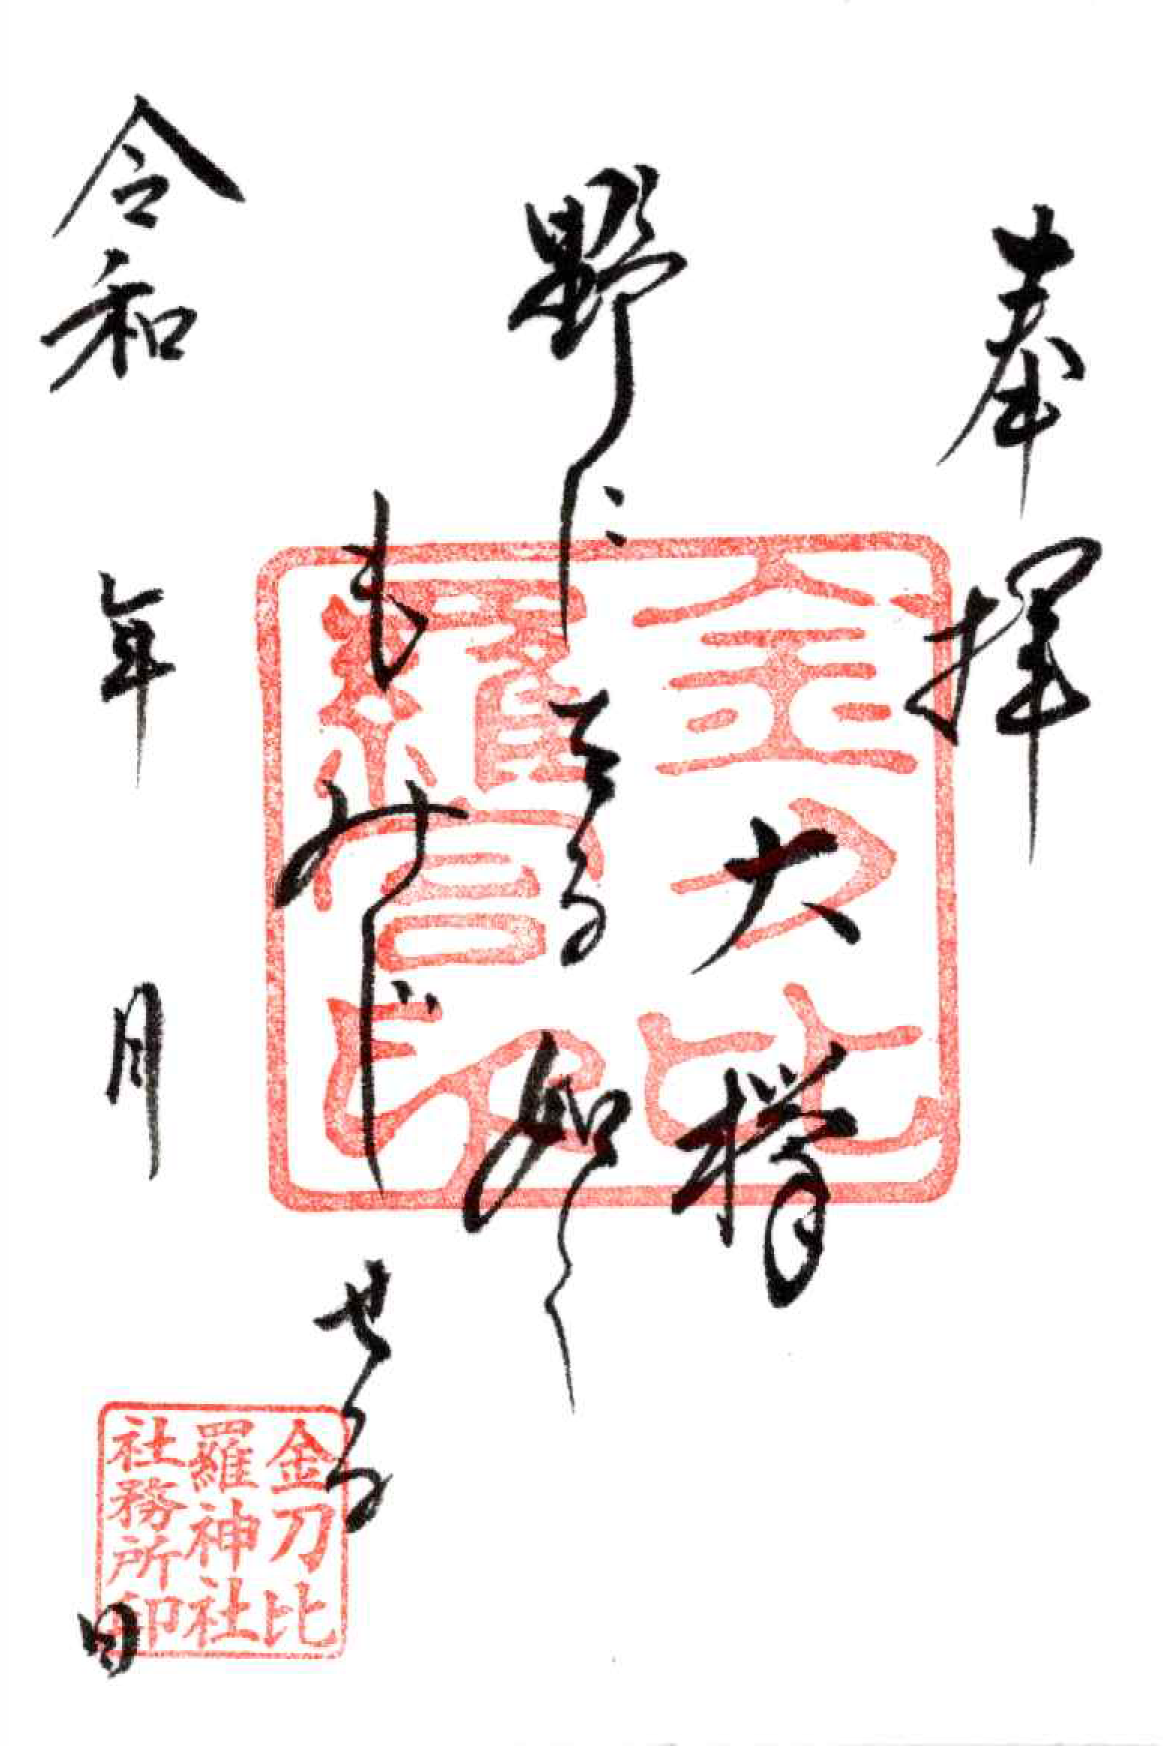 奉拝
大欅
野に る如く
もみじせる
令和 年 月 日
金刀比
羅宮印
金刀比
羅神社
社務所印